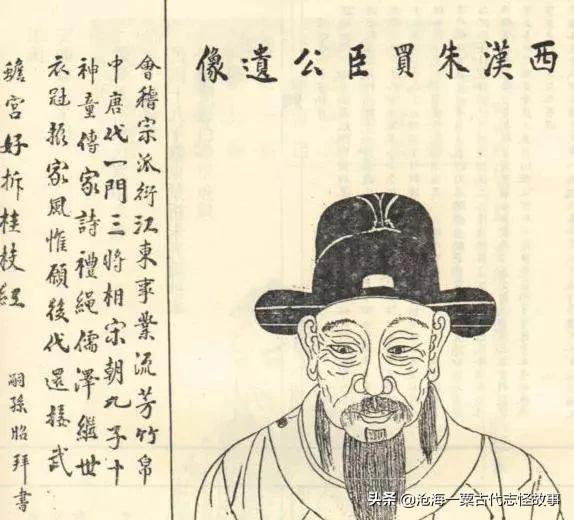 西漢朱買臣公遺像
會稽宗派衍江東事業流芳竹帛
中唐代一門三將相宋朝九子十
神童傳家詩禮繩儒澤繼世
衣冠振家風惟願後代還接武
蟾宮好折桂枝紅
嗣孫昭拜書
头条 @沧海一粟古代志怪故事